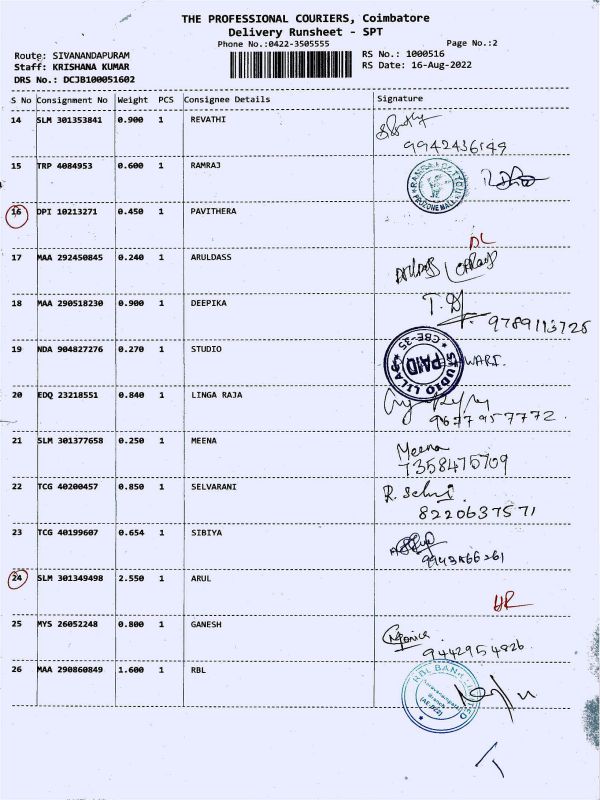 THE PROFESSIONAL COURIERS, Coimbatore
Delivery Runsheet - SPT
Phone No.:0422-3505555 Page No.:2
Route: SIVANANDAPURAM RS No.: 1000516
Staff: KRISHANA KUMAR RS Date: 16-Aug-2022
DRS No.: DCJB100051602
S No Consignment No Weight PCS Consignee Details Signature
14 SLM 301353841 0.900 1 REVATHI
9942436549
15 TRP 4084953 0.600 1 RAMRAJ
PROZONE MALL
16 DPI 10213271 0.450 1 PAVITHERA
DL
17 MAA 292450845 0.240 1 ARULDASS
18 MAA 290518230 0.900 1 DEEPIKA
9789113725
19 NDA 904827276 0.270 1 STUDIO
CBE-35
PAID
20 EDQ 23218551 0.840 1 LINGA RAJA
9677957772
21 SLM 301377658 0.250 1 MEENA
Meena
7358475709
22 TCG 40200457 0.850 1 SELVARANI
R. Selvi
8220637571
23 TCG 40199607 0.654 1 SIBIYA
24 SLM 301349498 2.550 1 ARUL
25 MYS 26052248 0.800 1 GANESH
9442954826
26 MAA 290860849 1.600 1 RBL
RBL BANK LIMITED